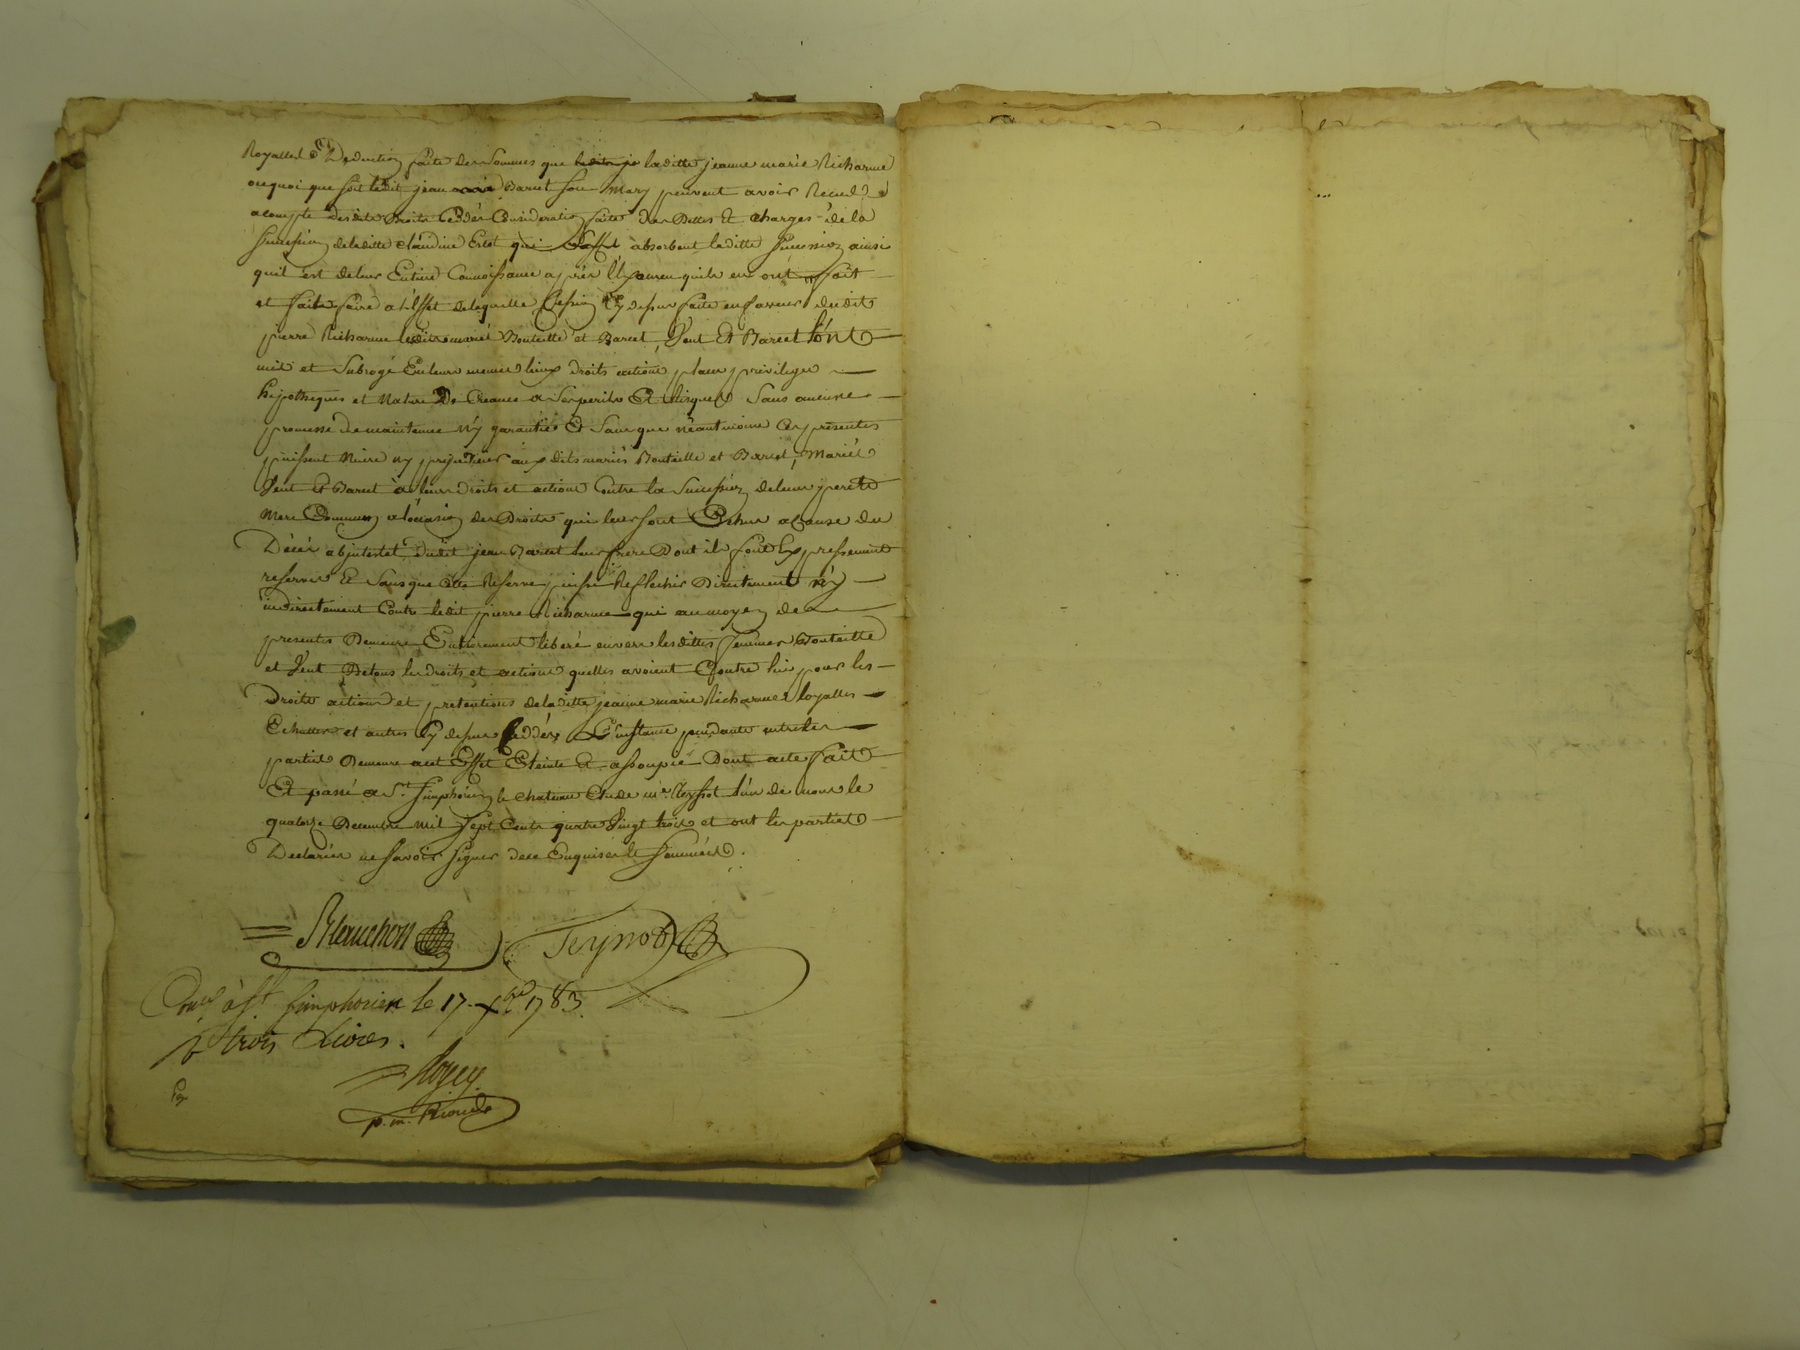 Royalles Deduction faite des sommes que laditte jeanne marie Richarme
ou quoi que soit ledit jean Barcet son Mary peuvent avoir Receu
acompte desdits Droits Ceddés Consideration faite des Dettes Et charges de la
succession de laditte claudine absorbent laditte succession ainsi
quil est de leur Entiere Connoissance apres l'Examen quils en ont fait
et fait faire a l'Effet de laquelle Cession Cy dessus faite en faveur dudit
pierre Richarme lesdits mariés Bouteille et Barcet, Et Barcet l'ont
mis et Subrogé En leurs memes lieux droits actions place privilege
hipotheques et Nature De Creance a ses perils Et Risques Sans aucune
promesse de maintenue n'y garantie Et Sans que néantmoins Ces presentes
puissent Nuire ny prejudicier aux dits mariés Bouteille et Barcet, Mariés
Et Barcet a leurs droits et actions Contre la Succession de leurs pere et
Mere Commun a l'occasion des Droits qui leur sont Echus a Cause du
Décés abjntestat dudit jean Barcet leur frere Dont ils font Expressement
reserve Et Sans que Cette Reserve puisse Reflechir Directement n'y
indirectement Contre ledit pierre Richarme qui au moyen de
presentes Demeure Entierement libéré envers lesdittes femmes Bouteille
et De tous les droits et actions quelles avoient Contre lui pour les
Droits actions et pretentions de laditte jeanne marie Richarme loyalles
Echuttes et autres Cy dessus Ceddés, L'instance pendante entre les
parties Demeure a cet Effet Eteinte Et assoupie Dont acte fait
Et passé a St. Simphorien le chateau Etude me. Teyssot l'un de nous le
quatorze Decembre Mil Sept Cents quatre Vingt trois et ont les parties
Declarées ne savoir signer de ce Enquises et Sommées.
Blanchon Teyssot
Conlé à St. simphorien le 17. Xbre 1783.
R trois Livres.
Rogey
p. m. Rionde